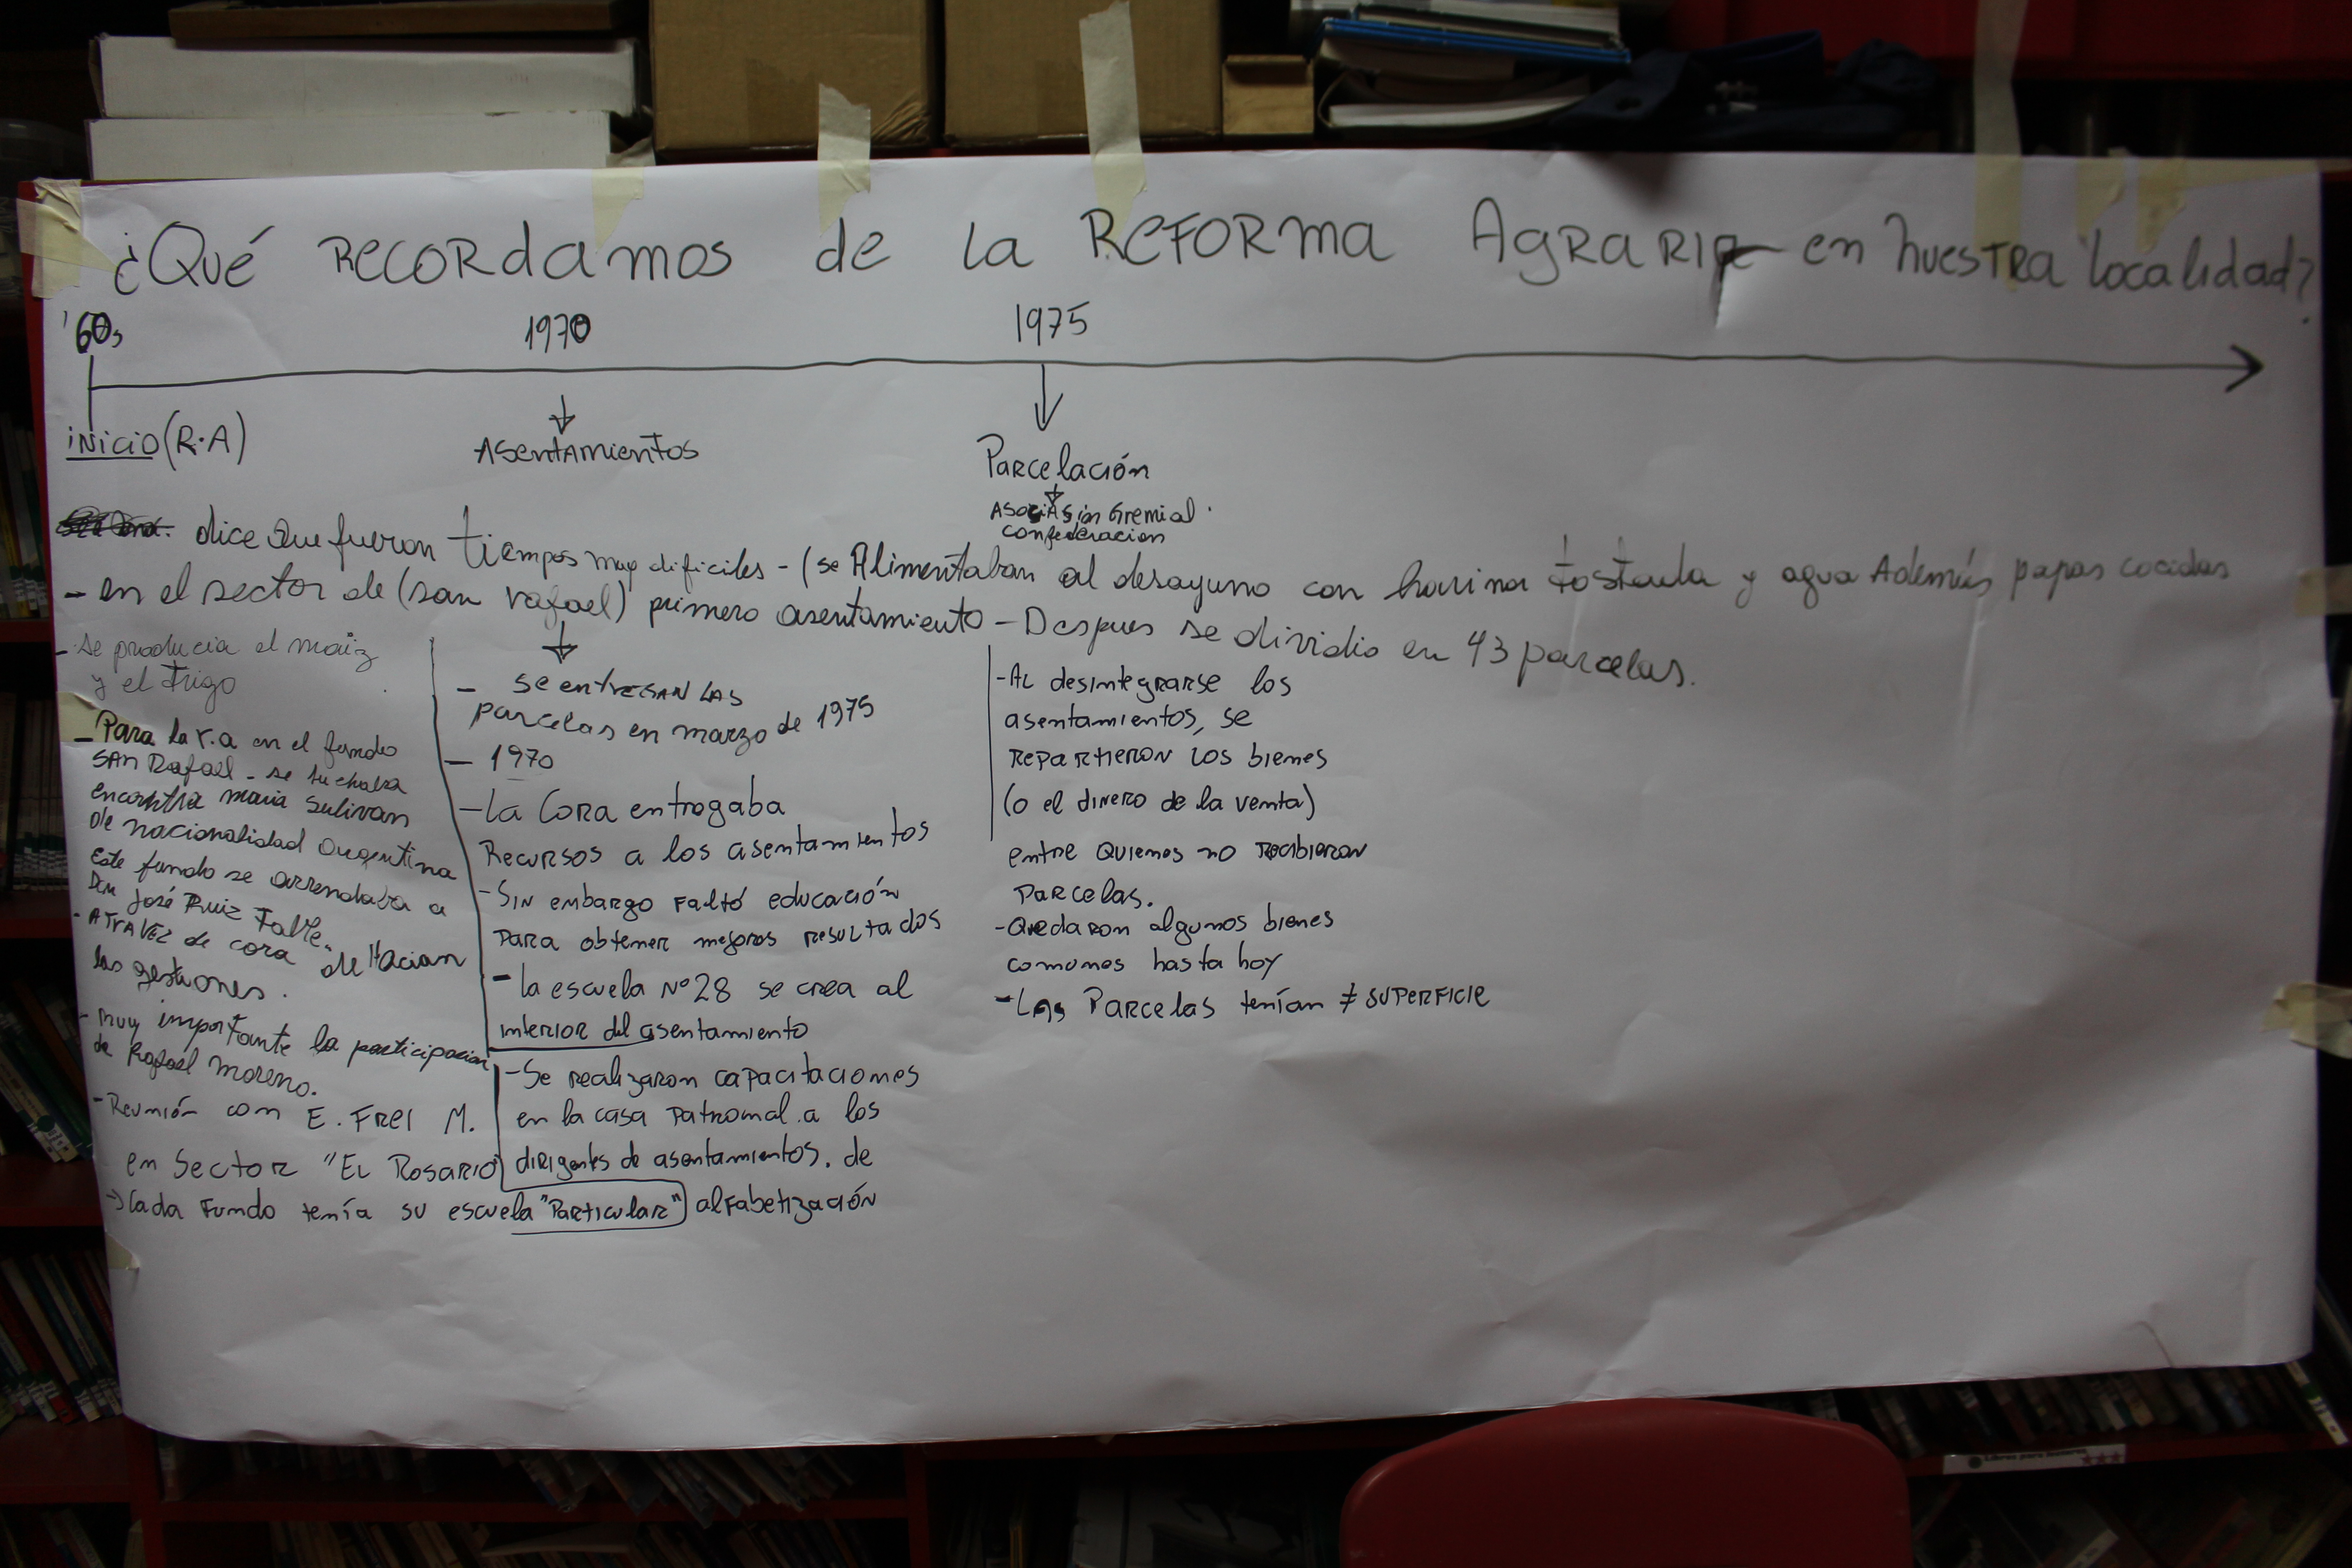 ¿Qué RECORdamos de la REFORMA AgRARIA en nuestra localidad?
'60s
1970
1975
inicio (R.A)
Asentamientos
Parcelación
Asociasión Gremial.
confederacion
dice que fueron tiempos muy dificiles - (se Alimentaban al desayuno con harina tostada y agua Además papas cocidas
- en el sector de (san rafael) primero asentamiento - Despues se dividio en 43 parcelas.
- se producia el maiz
y el trigo
- Para la r.a en el fundo
SAN Rafael - se
encontra maria Sulivan
de nacionalidad argentina
Este fundo se arrendaba a
Don José Ruiz Tatle.
- ATRAVEZ de cora de Hacian
las gestiones.
- muy importante la participacion
de Rafael moreno.
- Reunión con E. FREI M.
en Sector "EL ROSARIO"
→ Cada Fundo tenía su escuela "Particular"
- se entregan las
parcelas en marzo de 1975
- 1970
- La Cora entregaba
Recursos a los asentamientos
- Sin embargo faltó educación
para obtener mejores resultados
- la escuela Nº 28 se crea al
interior del asentamiento
- Se realizaron capacitaciones
en la casa patronal a los
dirigentes de asentamientos. de
alfabetización
- Al desintegrarse los
asentamientos, se
repartieron los bienes
(o el dinero de la venta)
entre quienes no recibieron
parcelas.
- Quedaron algunos bienes
comunes hasta hoy
- Las Parcelas tenían ≠ superficie